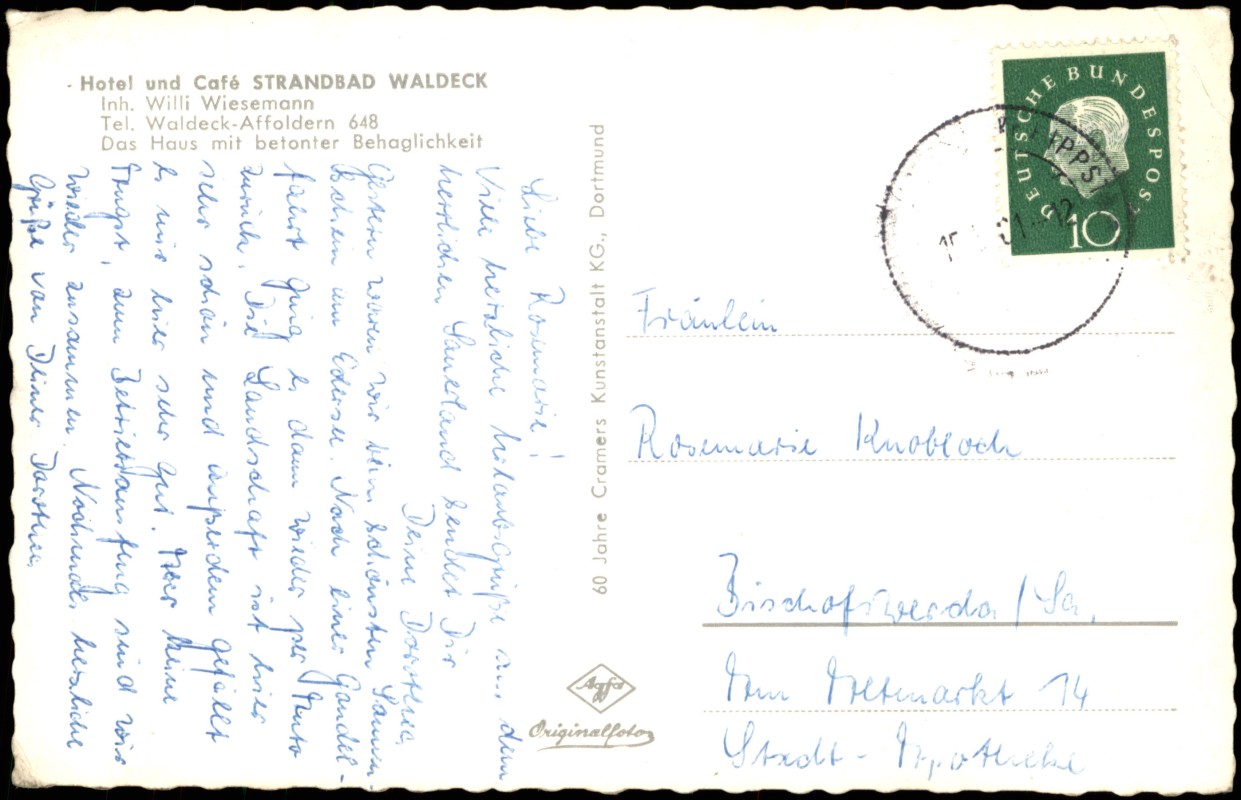 Hotel und Café STRANDBAD WALDECK
Inh. Willi Wiesemann
Tel. Waldeck-Affoldern 648
Das Haus mit betonter Behaglichkeit
Liebe Rosemarie!
Viele herzliche Urlaubsgrüße aus dem
herrlichen Sauerland sendet Dir
Deine Dorothea.
Gestern waren wir beim schönsten Sonnen-
schein am Edersee. Nach einer Gondel-
fahrt ging es dann wieder per Auto
zurück. Die Landschaft ist hier
sehr schön und außerdem gefällt
es mir hier sehr gut. Aber keine
Angst, zum Betriebsausflug sind wir
wieder zusammen. Nochmals herzliche
Grüße von Deiner Dorothea
60 Jahre Cramers Kunstanstalt KG., Dortmund
Agfa
Originalfoto
DEUTSCHE BUNDESPOST
10
Fräulein
Rosemarie Knobloch
Bischofswerda / Sa.
Am Altmarkt 14
Stadt-Apotheke